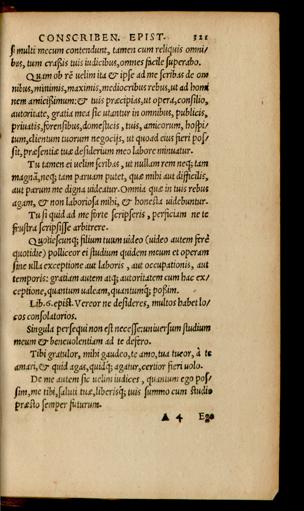 CONSCRIBEN. EPIST. 321
si multi mecum contendunt, tamen cum reliquis omni-
bus, tum crassis tuis iudicibus, omnes facile superabo.
Quam ob rē velim ita & ipse ad me scribas de om
nibus, minimis, maximis, mediocribus rebus, ut ad homi
nem amicissimum: & tuis præcipias, ut opera, consilio,
autoritate, gratia mea sic utantur in omnibus, publicis,
priuatis, forensibus, domesticis, tuis, amicorum, hospi-
tum, clientum tuorum negocijs, ut quoad eius fieri pos-
sit, præsentiæ tuæ desiderium meo labore minuatur.
Tu tamen ei uelim scribas, ut nullam rem neq; tam
magnā, neq; tam paruam putet, quæ mihi aut difficilis,
aut parum me digna uideatur. Omnia quæ in tuis rebus
agam, & non laboriosa mihi, & honesta uidebuntur.
Tu si quid ad me forte scripseris, perficiam ne te
frustra scripsisse arbitrere.
Quotiescunq; filium tuum uideo (uideo autem ferè
quotidie) polliceor ei studium quidem meum et operam
sine ulla exceptione aut laboris, aut occupationis, aut
temporis: gratiam autem atq; autoritatem cum hac ex-
ceptione, quantum ualeam, quantumq; possim.
Lib. 6. epist. Vereor ne desideres, multos habet lo-
cos consolatorios.
Singula persequi non est necesse: uniuersum studium
meum & beneuolentiam ad te defero.
Tibi gratulor, mihi gaudeo, te amo, tua tueor, à te
amari, & quid agas, quidq; agatur, certior fieri uolo.
De me autem sic uelim iudices, quantum ego pos-
sim, me tibi, saluti tuæ, liberisq; tuis summo cum studio
præsto semper futurum.
4 Ego